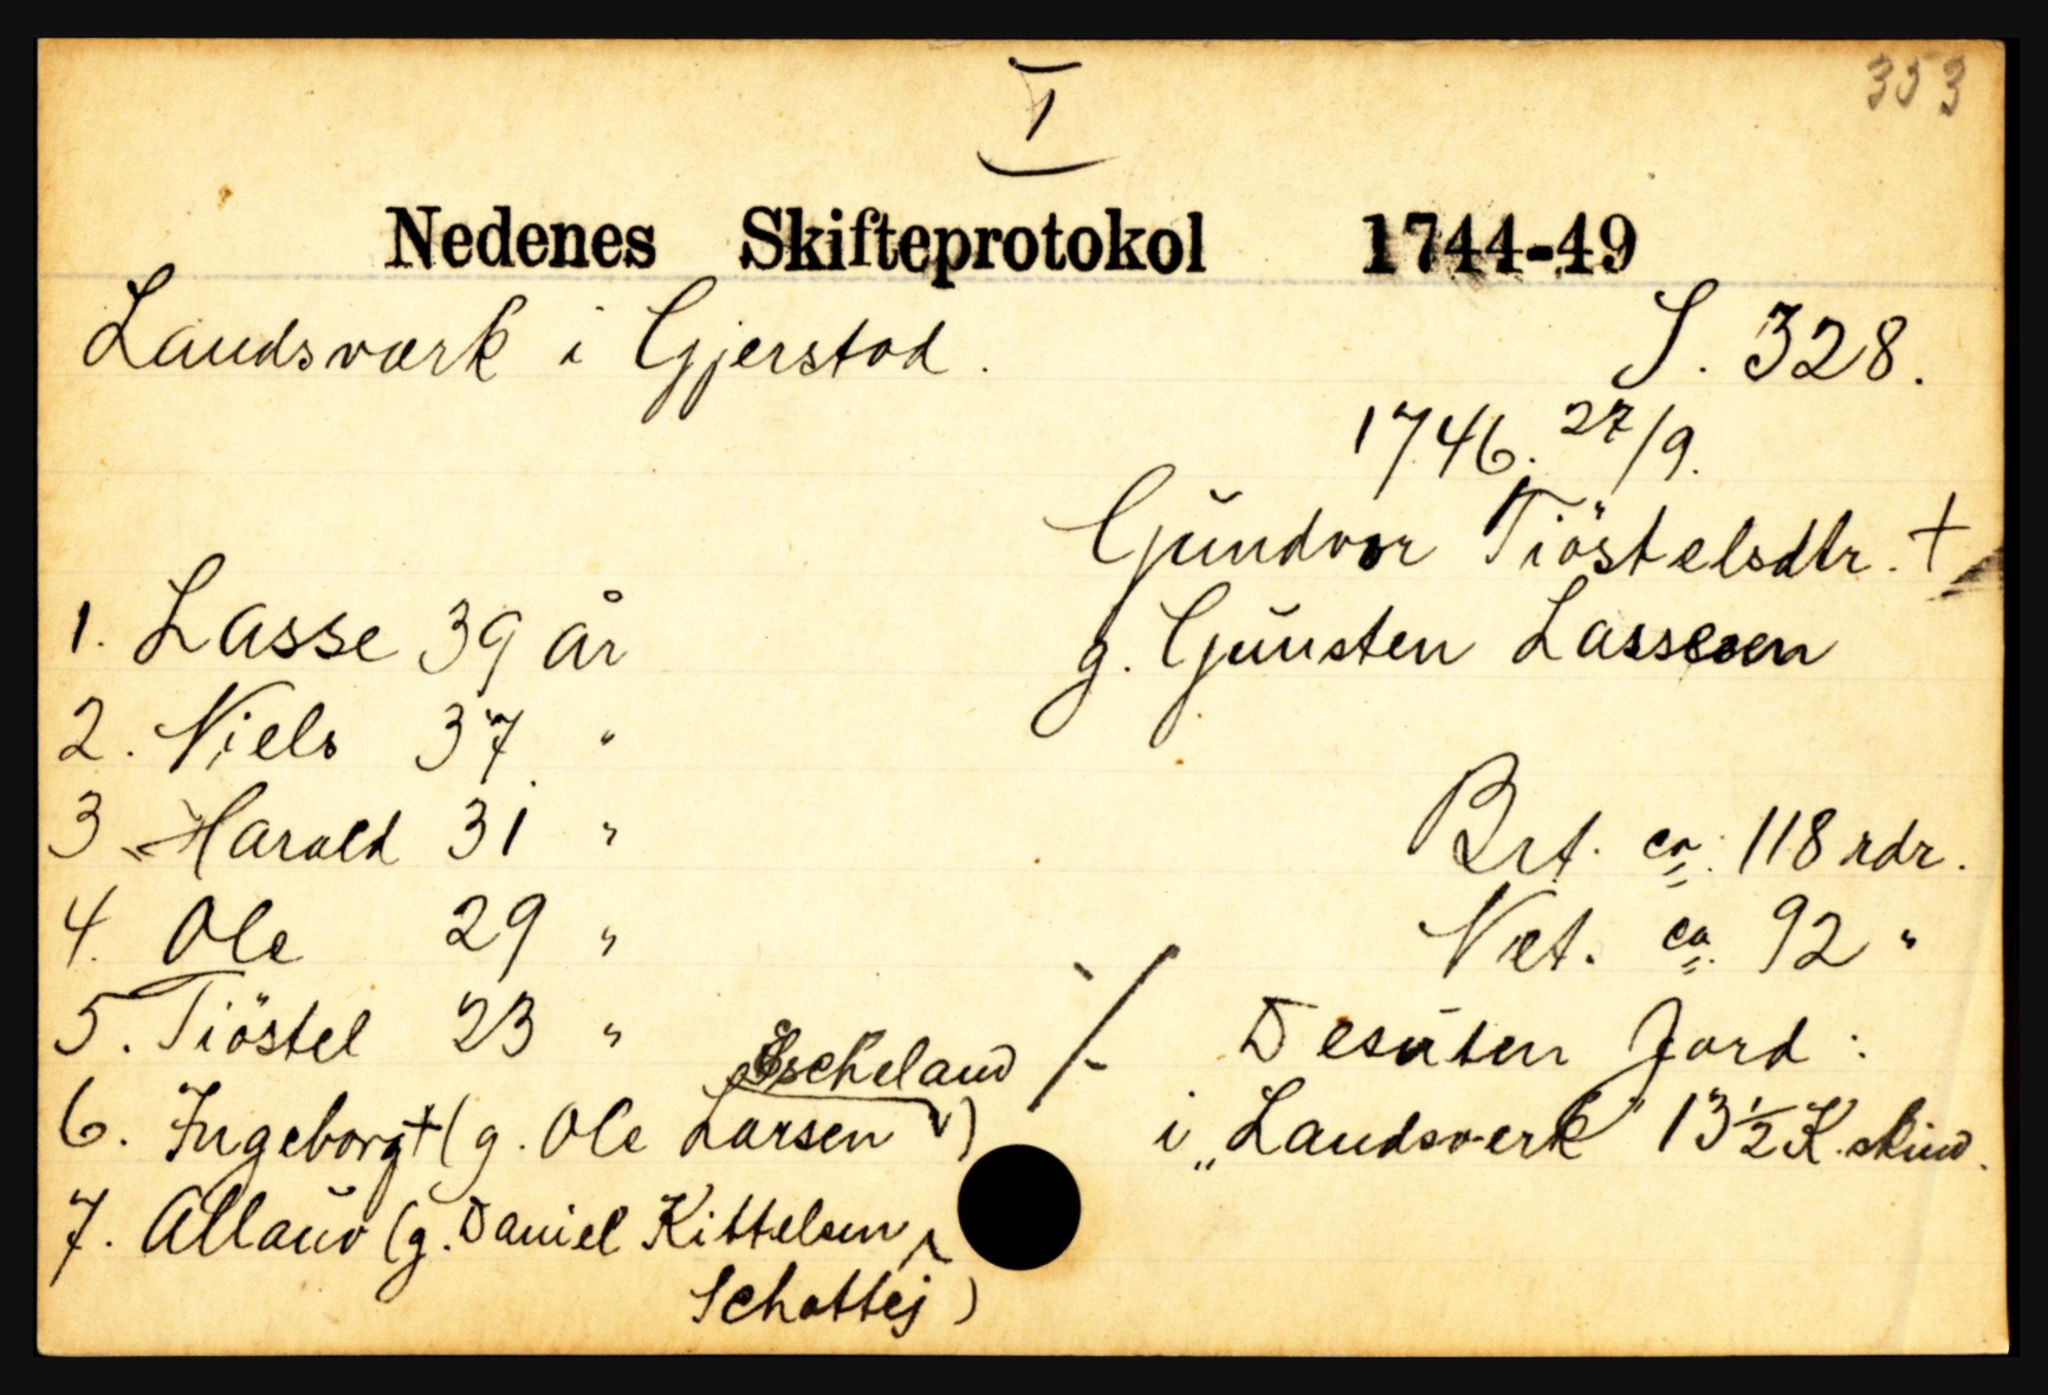 I
353
Nedenes Skifteprotokol 1744-49
Landsværk i Gjerstad.
S. 328.
1746. 27/9.
Gŭndvor Tiöstelsdtr. +
g. Gŭnsten Lassesen
1. Lasse 39 år
2. Niels 37 "
3. Harald 31 "
4. Ole 29 "
5. Tiöstel 23 "
6. Ingeborg + (g. Ole Larsen Escheland)
7. Allaŭv (g. Daniel Kittelsen
Schottej)
Brt. ca. 118 rdr.
Net. ca. 92 "
Desŭten Jord:
i „Landsverk" 13 ½ K. skind.